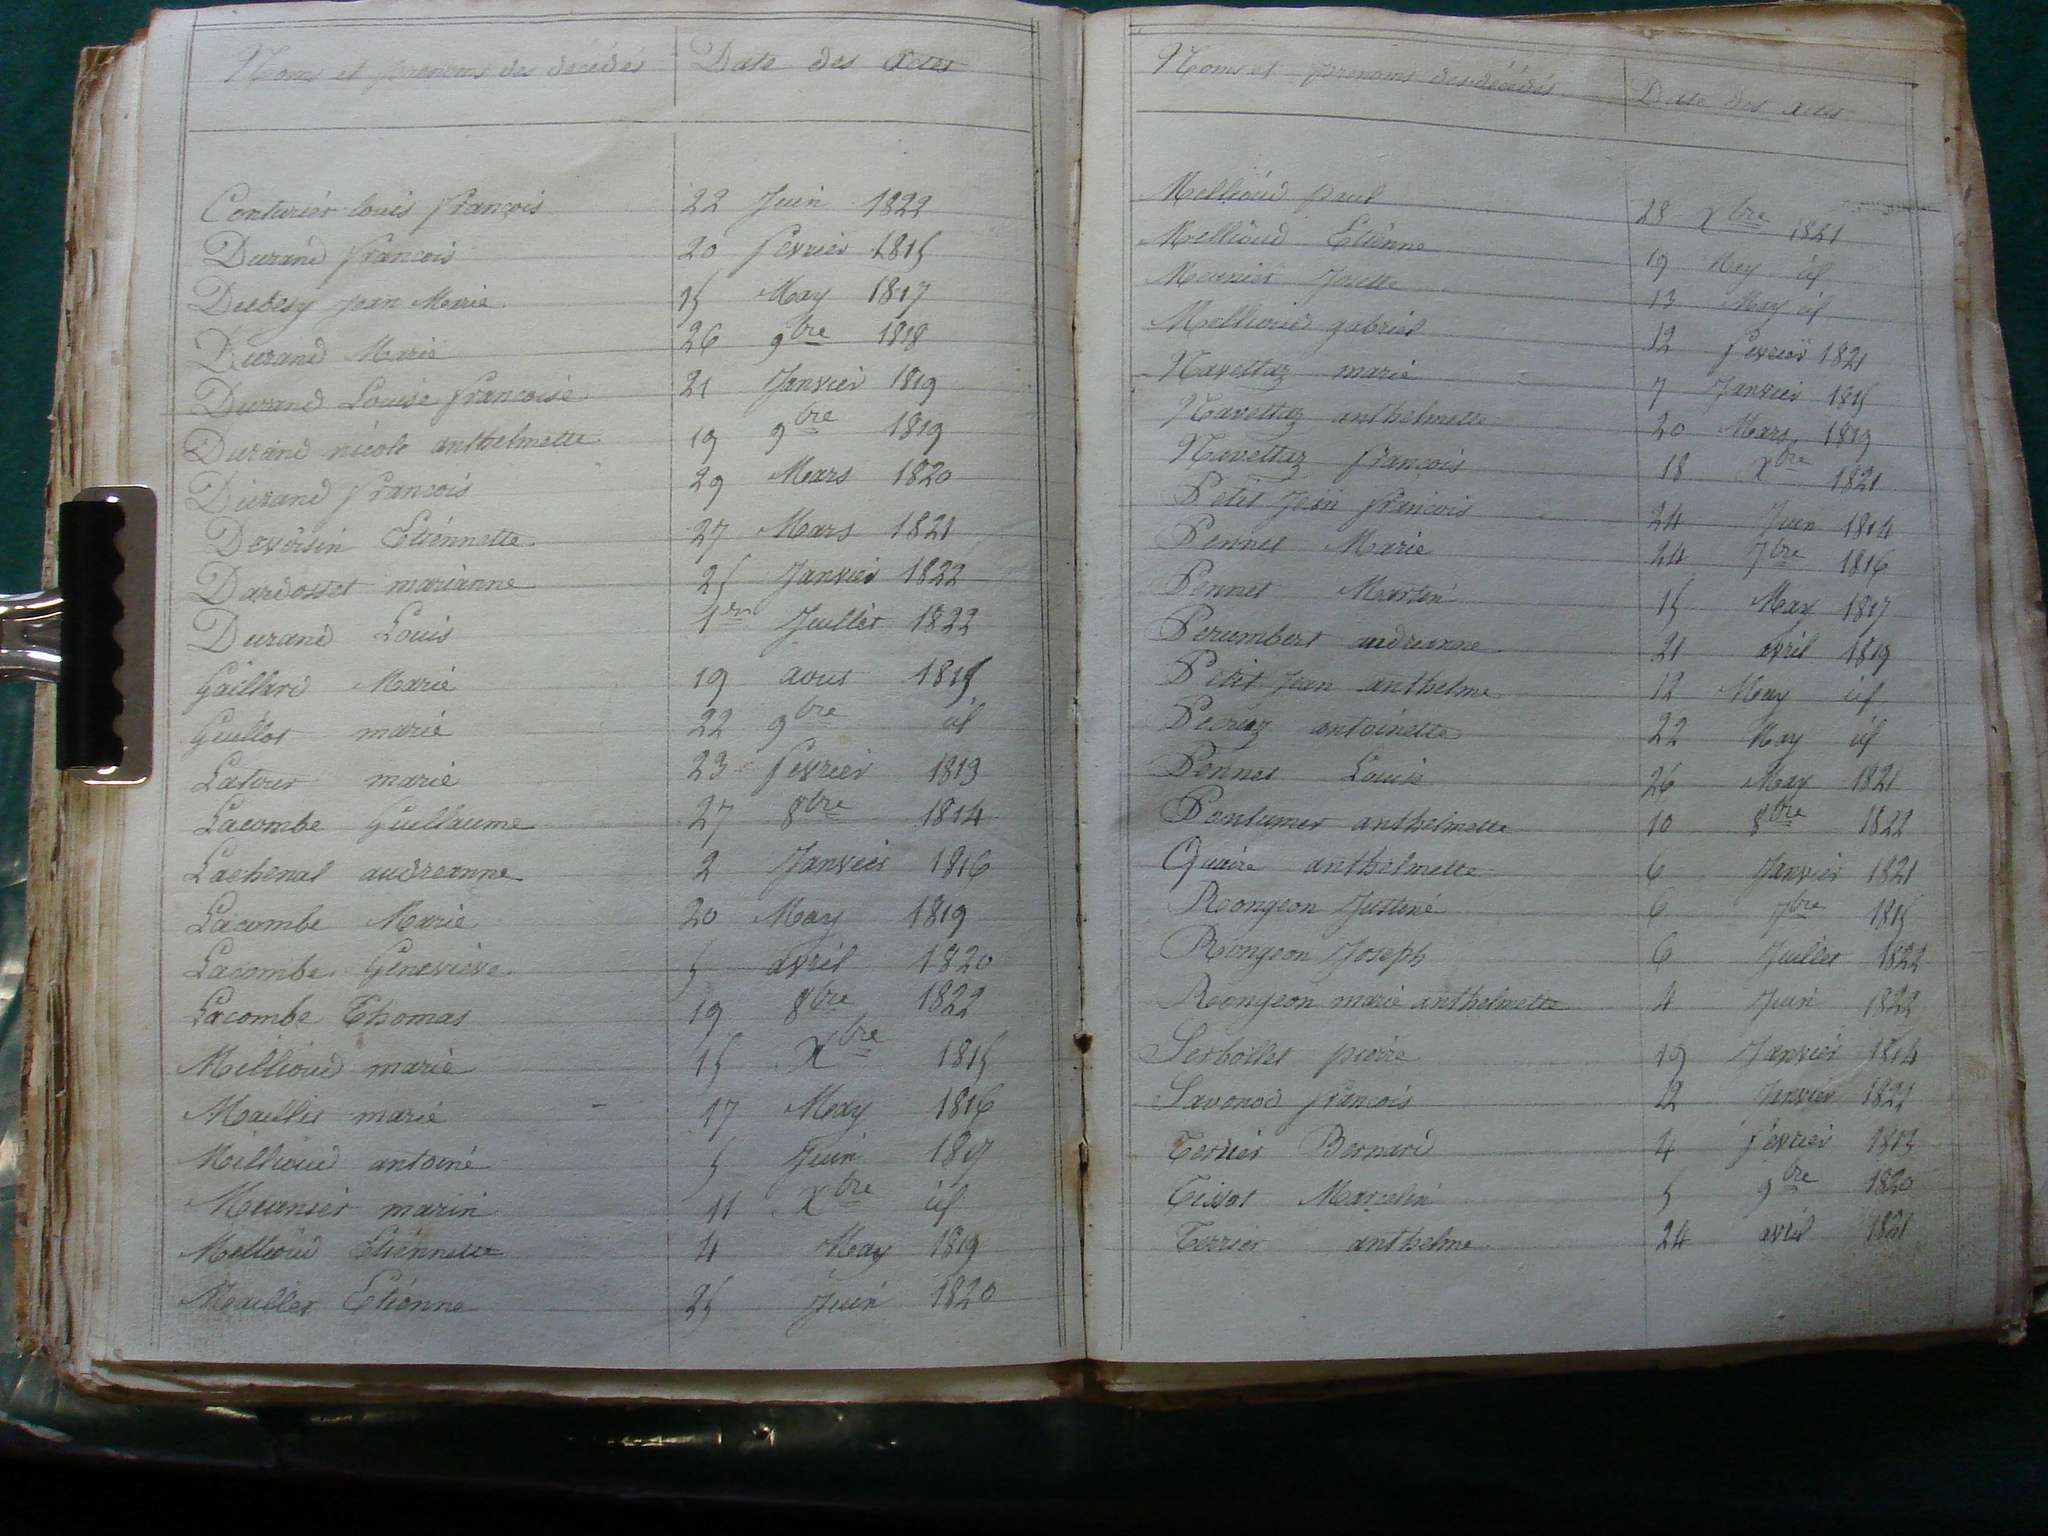 Noms et prenoms des décédés Date des Actes
Couturier louis françois 22 Juin 1822
Durand françois 20 fevrier 1815
Dubesy Jean Marie 15 May 1817
Durand Marie 26 9bre 1818
Durand Louise françoise 21 Janvier 1819
Durand nicole anthelmette 19 9bre 1819
Durand françois 29 Mars 1820
Devoisin Etiennette 27 Mars 1821
Dardosset marianne 25 Janvier 1822
Durand Louis 1er Juillet 1822
Gaillard Marie 19 aout 1815
Guillot marie 22 9bre id
Latour marie 23 fevrier 1813
Lacombe Guillaume 27 8bre 1814
Lachenal audreanne 2 Janvier 1816
Lacombe Marie 20 May 1819
Lacombe Genevieve 5 avril 1820
Lacombe Thomas 19 8bre 1822
Millioud marie 15 Xbre 1815
Maillet marie 17 May 1816
Millioud antoine 5 Juin 1817
Meunier marin 11 Xbre id
Millioud Etiennette 4 May 1819
Maillet Etienne 25 Juin 1820
Noms et prenoms des décédés Date des actes
Millioud paul 28 Xbre 1821
Millioud Etienne 19 May id
Meunier Josette 13 May id
Millioud gabriel 12 fevrier 1821
Navettaz marie 7 Janvier 1815
Navettaz anthelmette 20 Mars 1819
Navettaz françois 18 Xbre 1821
Petit Jean françois 24 Juin 1814
Pennet Marie 24 7bre 1816
Pennet Martin 15 May 1817
Perumbert audreanne 21 avril 1819
Petit Jean anthelme 12 May id
Perriaz antoinette 22 May id
Pennet Louise 26 May 1821
anthelmette 10 8bre 1822
Quaire anthelmette 6 Janvier 1821
Rongeon Justine 6 7bre 1815
Rongeon Joseph 6 Juillet 1822
Rongeon marie anthelmette 4 Juin 1822
Serbollet pierre 19 Janvier 1814
Savonod françois 12 Janvier 1821
Terrier Bernard 4 fevrier 1813
Tissot Marcelin 5 9bre 1820
Terrier anthelme 24 avril 1821